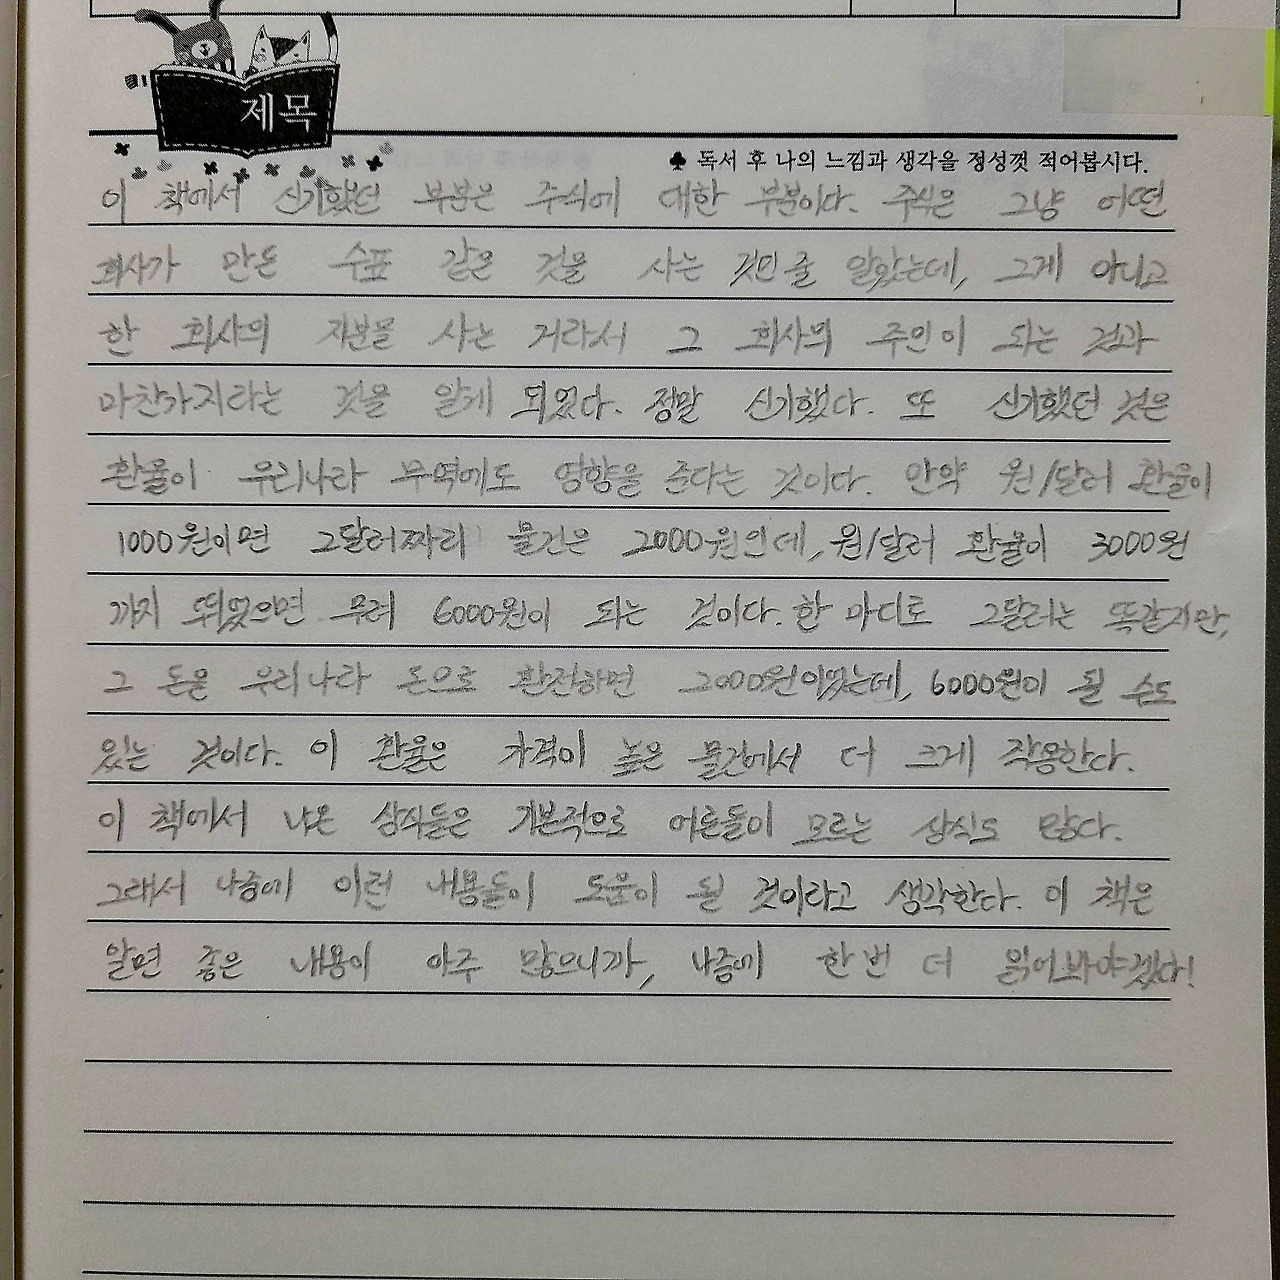 제목
♣ 독서 후 나의 느낌과 생각을 정성껏 적어봅시다.
이 책에서 신기했던 부분은 주식에 대한 부분이다. 주식은 그냥 어떤
회사가 만든 수표 같은 것을 사는 것인 줄 알았는데, 그게 아니고
한 회사의 지분을 사는 거라서 그 회사의 주인이 되는 것과
마찬가지라는 것을 알게 되었다. 정말 신기했다. 또 신기했던 것은
환율이 우리나라 무역에도 영향을 준다는 것이다. 만약 원/달러 환율이
1000원이면 2달러짜리 물건은 2000원인데, 원/달러 환율이 3000원
까지 뛰었으면 무려 6000원이 되는 것이다. 한 마디로 2달러는 똑같지만,
그 돈을 우리나라 돈으로 환전하면 2000원이었는데, 6000원이 될 수도
있는 것이다. 이 환율은 가격이 높은 물건에서 더 크게 작용한다.
이 책에서 나온 상식들은 기본적으로 어른들이 모르는 상식도 많다.
그래서 나중에 이런 내용들이 도움이 될 것이라고 생각한다. 이 책은
알면 좋은 내용이 아주 많으니까, 나중에 한 번 더 읽어봐야겠다!